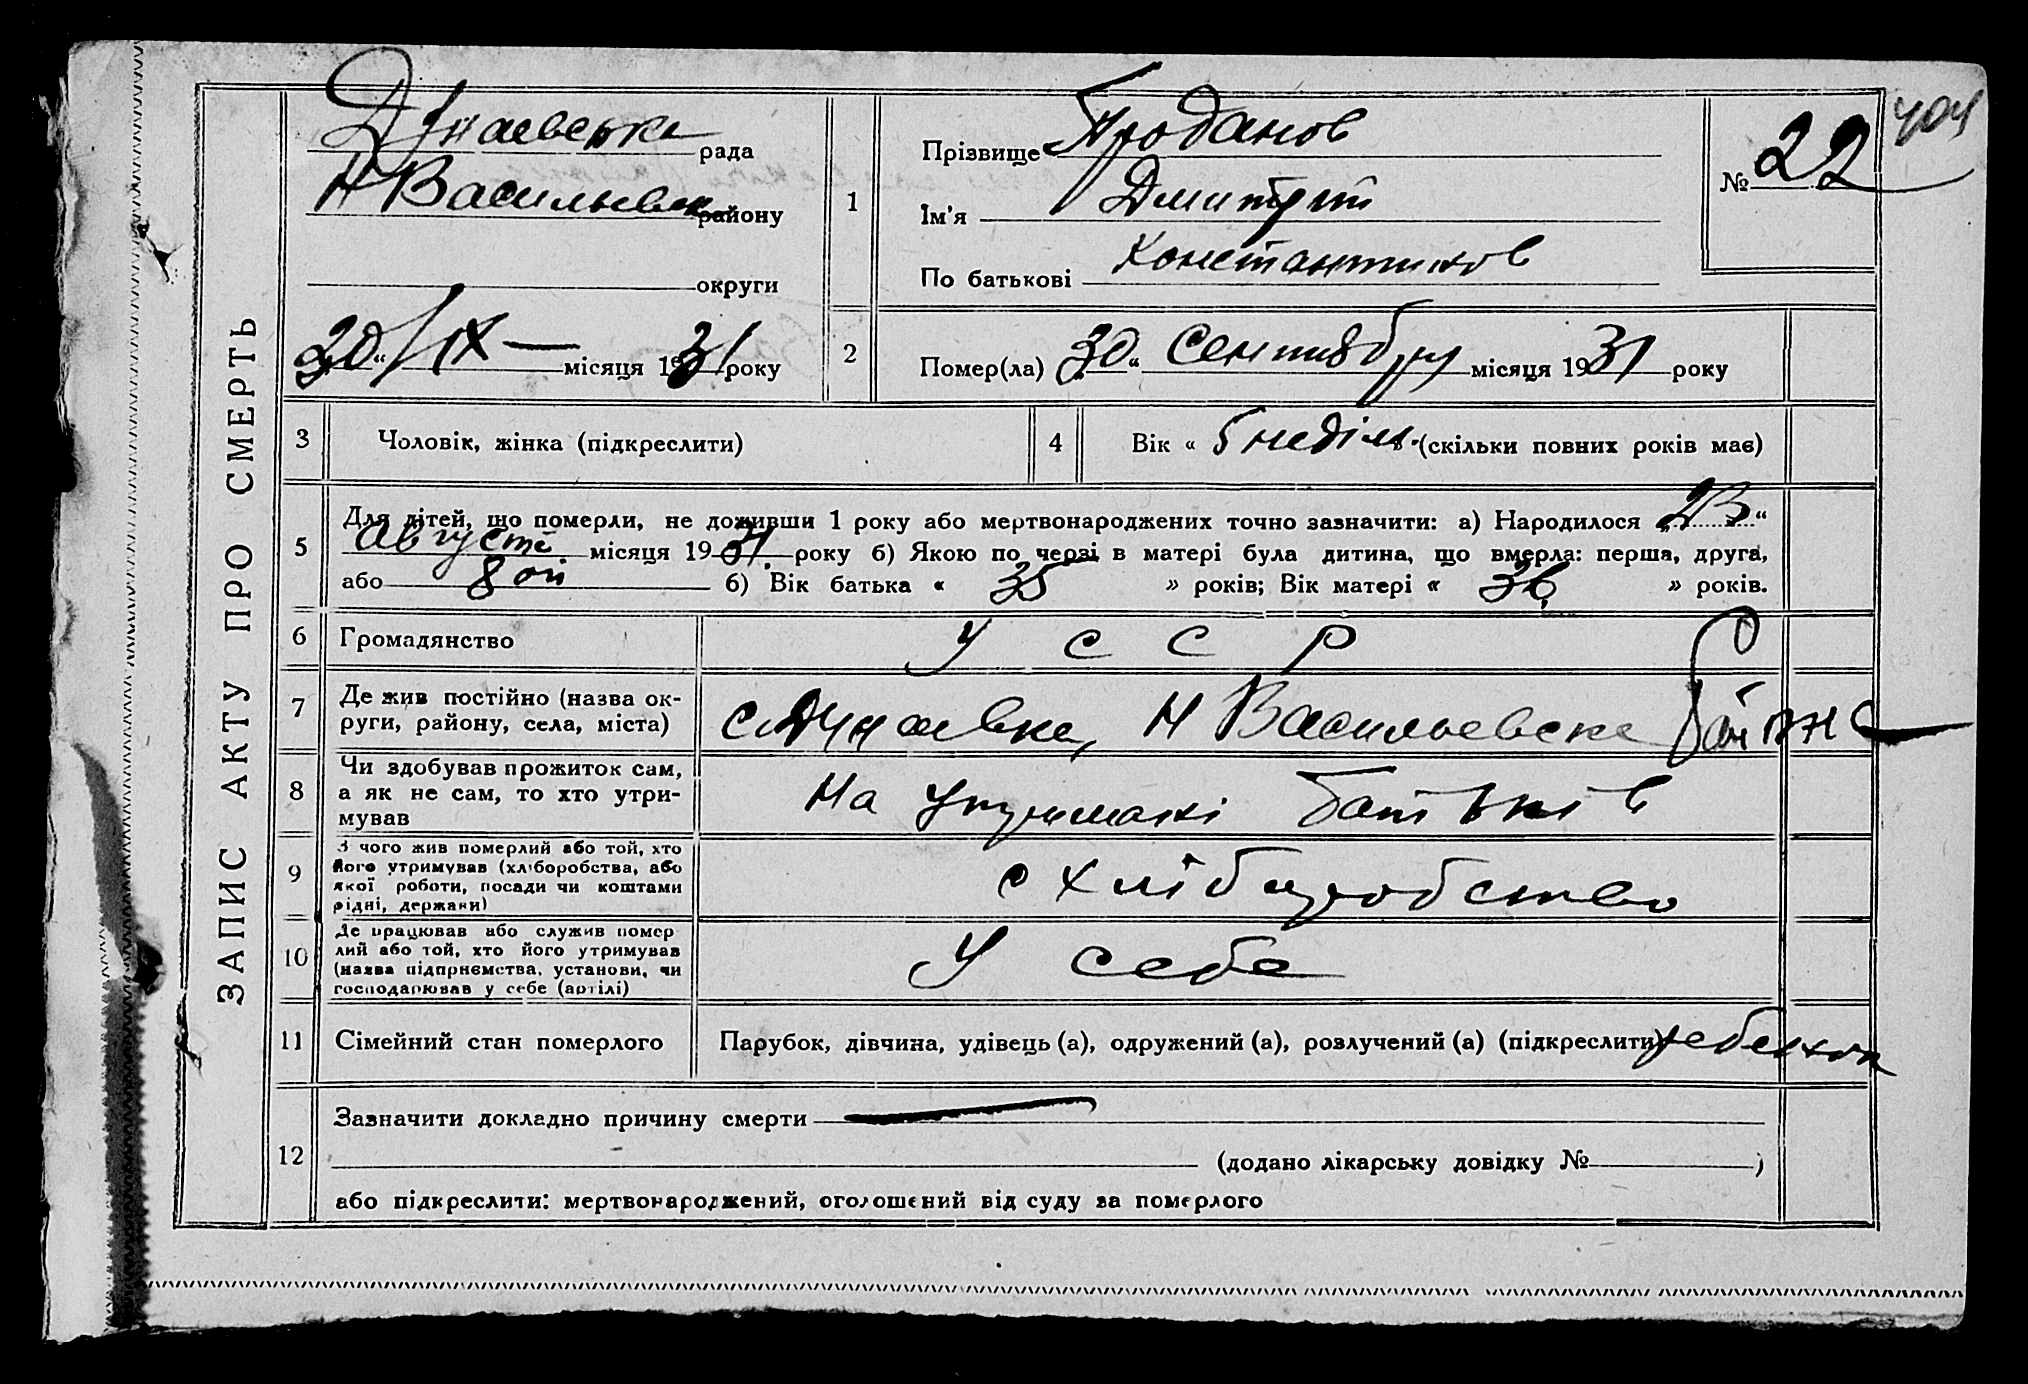 ЗАПИС АКТУ ПРО СМЕРТЬ
Дунаевська рада
Н Васильевск району
округи
30 “ IX — місяця 1931 року
1
Прізвище Проданов
Ім'я Дмитрий
По батькові Константинов
№ 22
404
2
Помер(ла) „30“ Сентября місяця 1931 року
3
Чоловік, жінка (підкреслити)
4
Вік « 5 неділь » (скільки повних років має)
5
Для дітей, що померли, не доживши 1 року або мертвонароджених точно зазначити: а) Народилося „23“
Августа місяця 1931 року б) Якою по черзі в матері була дитина, що вмерла: перша, друга,
або 8 ой б) Вік батька « 35 » років; Вік матері « 36 » років.
6
Громадянство
У С С Р
7
Де жив постійно (назва ок-
руги, району, села, міста)
с. Дунаевка, Н Васильевска
8
Чи здобував прожиток сам,
а як не сам, то хто утри-
мував
на утриманні батьків
9
З чого жив померлий або той, хто
його утримував (хліборобства, або
якої роботи, посади чи коштами
рідні, держави)
с хліборобство
10
Де працював або служив помер
лий або той, хто його утримував
(назва підприємства, установи, чи
господарював у себе (артілі)
У себе
11
Сімейний стан померлого
Парубок, дівчина, удівець (а), одружений (а), розлучений (а) (підкреслити) ребенок
12
Зазначити докладно причину смерти —
(додано лікарську довідку № )
або підкреслити: мертвонароджений, оголошений від суду за померлого